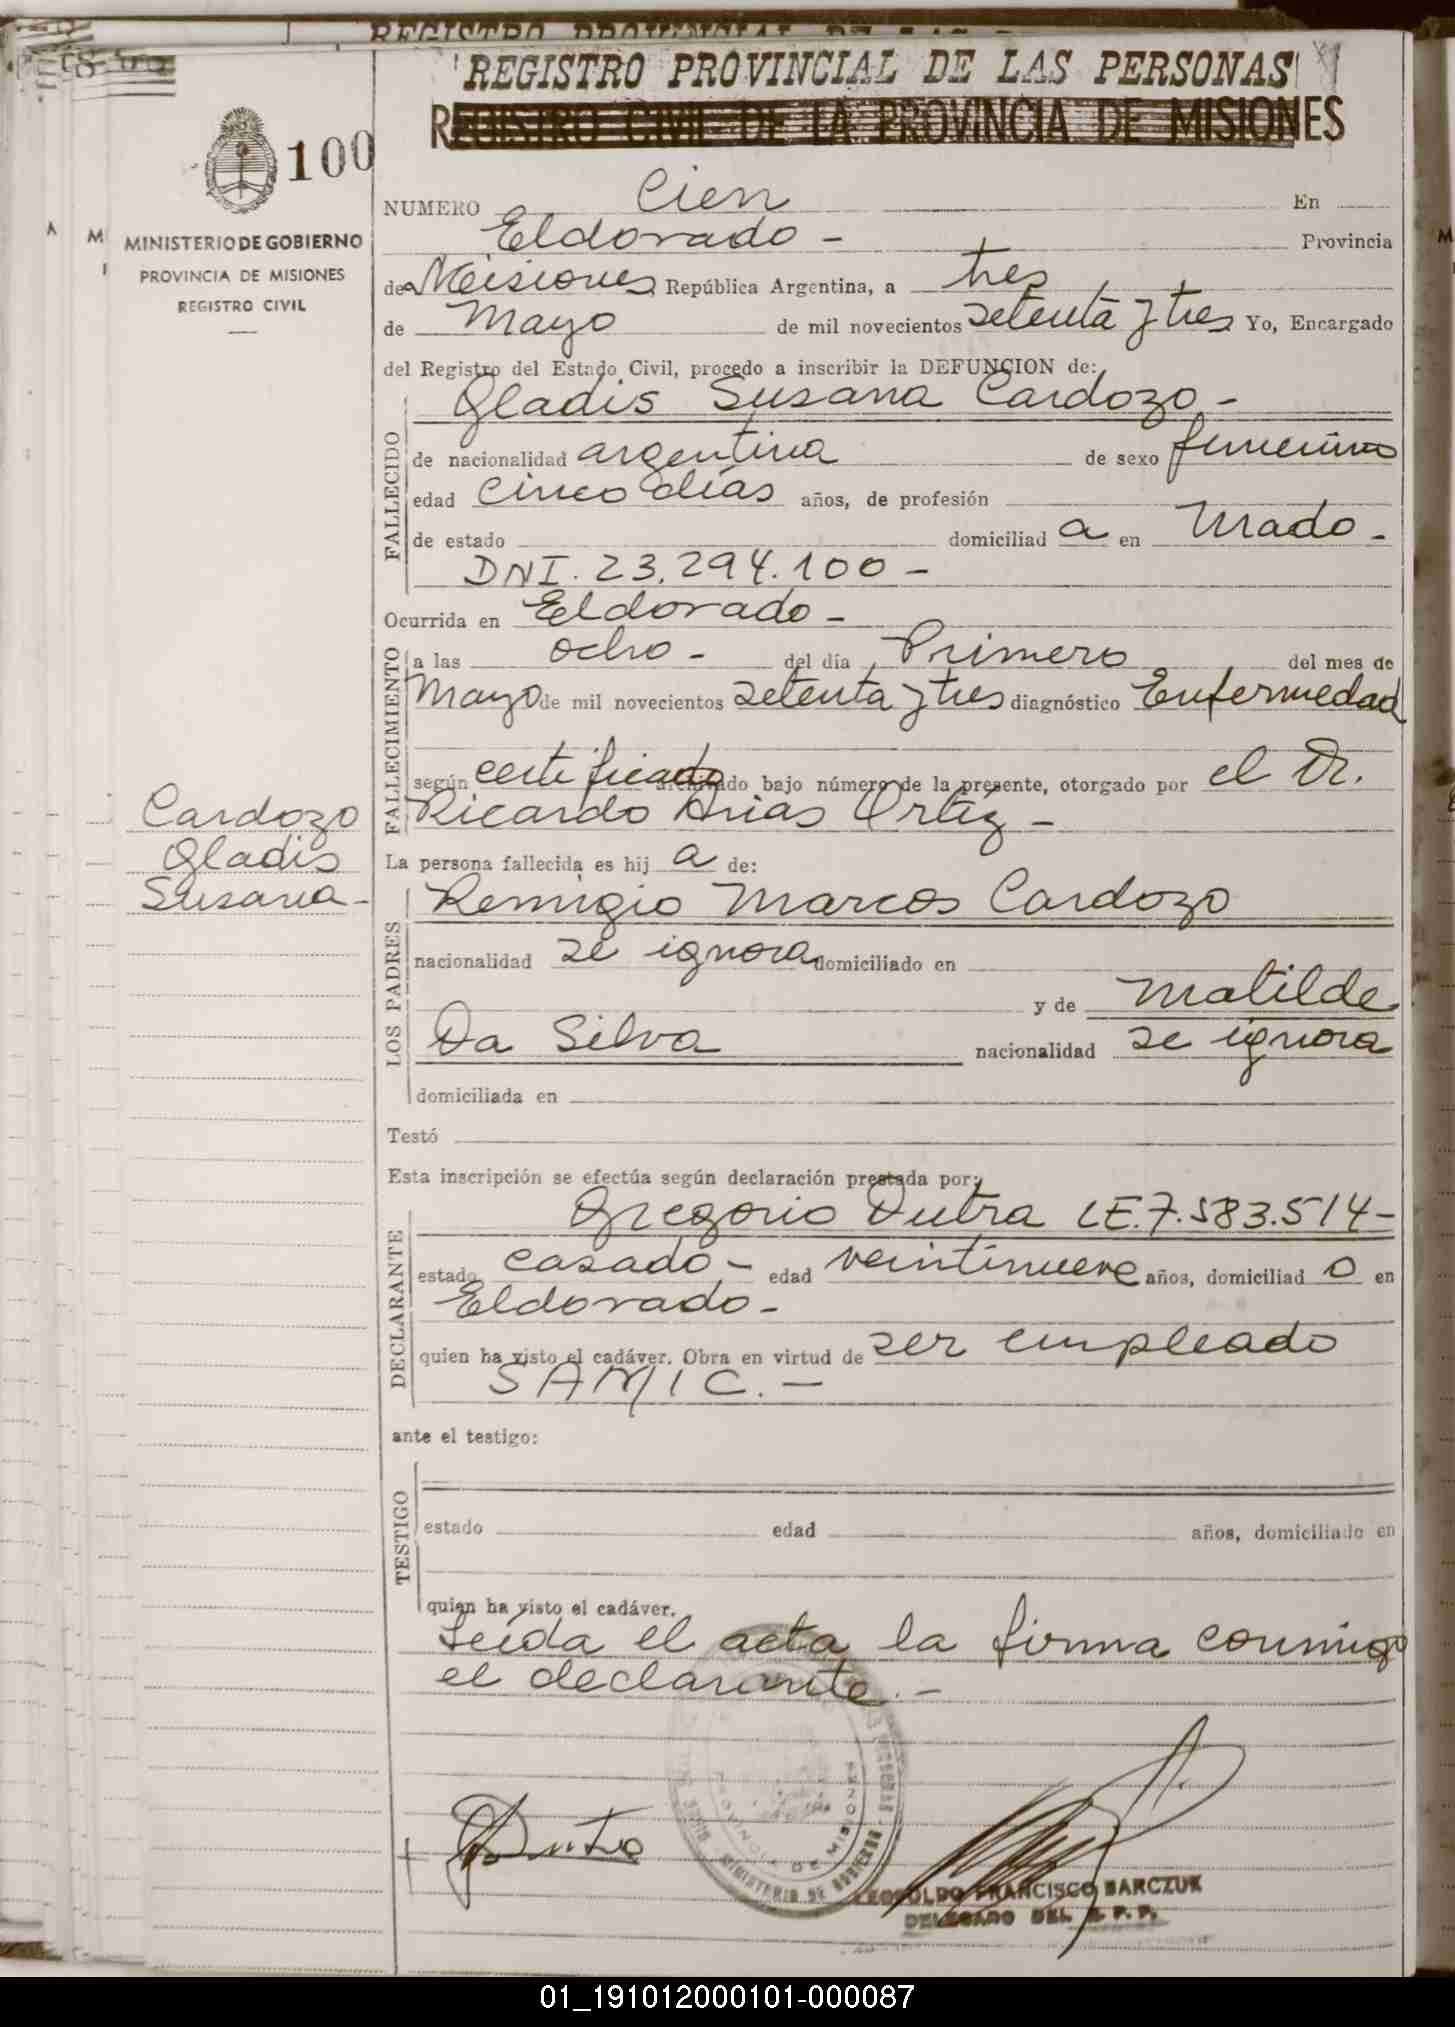 REGISTRO PROVINCIAL DE LAS PERSONAS
REGISTRO CIVIL DE LA PROVINCIA DE MISIONES
100
MINISTERIO DE GOBIERNO
PROVINCIA DE MISIONES
REGISTRO CIVIL
NUMERO Cien En
Eldorado - Provincia
de Misiones República Argentina, a tres
de Mayo de mil novecientos setenta y tres Yo, Encargado
del Registro del Estado Civil, procedo a inscribir la DEFUNCION de:
FALLECIDO
Gladis Susana Cardozo -
de nacionalidad argentina de sexo femenino
edad cinco días años, de profesión
de estado domiciliad a en Mado -
DNI. 23.294.100 -
Ocurrida en Eldorado -
FALLECIMIENTO
a las ocho - del día Primero del mes de
Mayo de mil novecientos setenta y tres diagnóstico Enfermedad
según certificado archivado bajo número de la presente, otorgado por el Dr.
Ricardo Arias Ortíz -
Cardozo
Gladis
Susana -
La persona fallecida es hij a de:
LOS PADRES
Remigio Marcos Cardozo
nacionalidad se ignora domiciliado en
y de Matilde
Da Silva nacionalidad se ignora
domiciliada en
Testó
Esta inscripción se efectúa según declaración prestada por:
DECLARANTE
Gregorio Dutra LE.7.583.514-
estado casado - edad veintinueve años, domiciliad o en
Eldorado -
quien ha visto el cadáver. Obra en virtud de ser empleado
SAMIC. -
ante el testigo:
TESTIGO
estado edad años, domiciliado en
quien ha visto el cadáver.
Leída el acta la firma conmigo
el declarante. -
PROVINCIA DE MISIONES
MINISTERIO DE GOBIERNO
GDutra
LEOPOLDO FRANCISCO BARCZUK
DELEGADO DEL R. P. P.
01_191012000101-000087